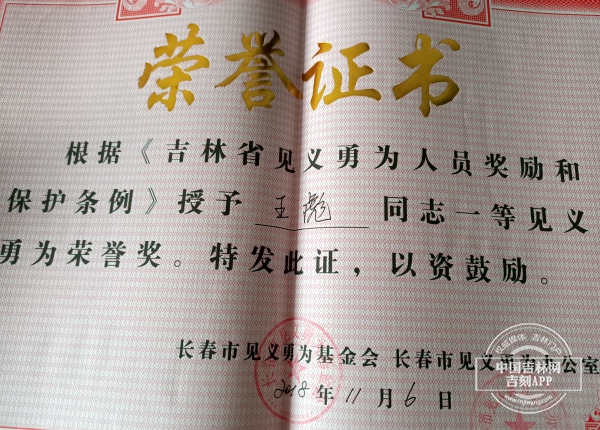 荣誉证书
根据《吉林省见义勇为人员奖励和
保护条例》授予 王彪 同志一等见义
勇为荣誉奖。特发此证，以资鼓励。
长春市见义勇为基金会 长春市见义勇为办公室
2018年11月6日
中国吉林网
吉刻APP